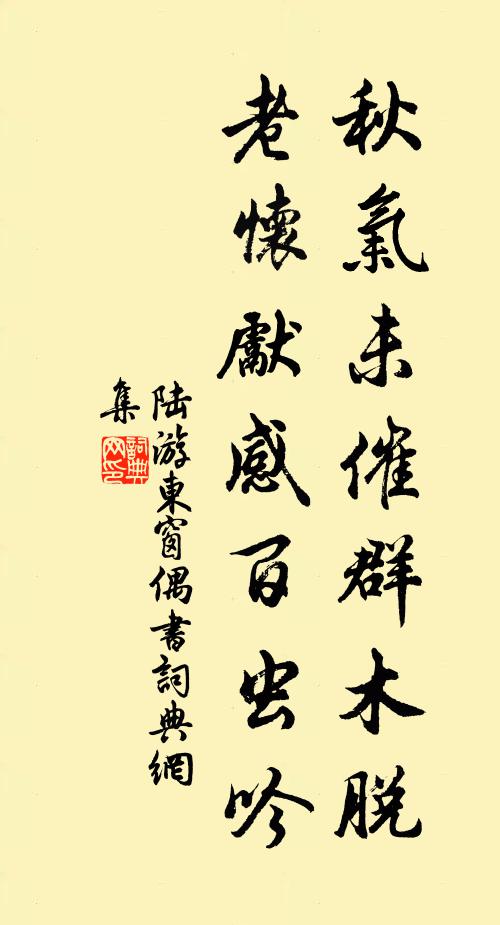 秋氣未催群木脱
老懷獻感百虫吟
陆游東窗偶書詞典網
集
詞典网印